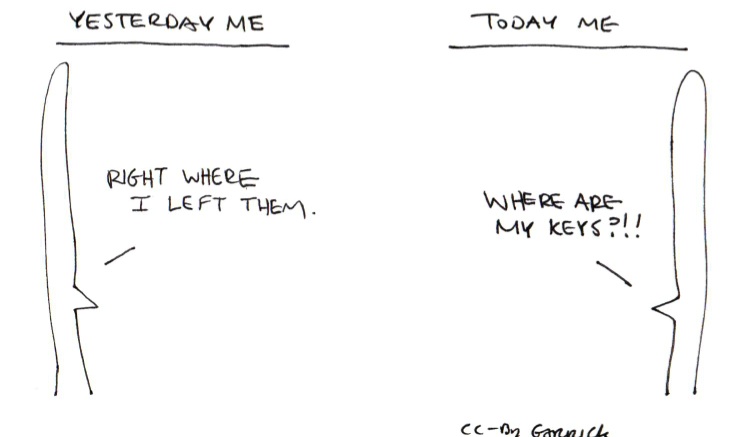 YESTERDAY ME
TODAY ME
RIGHT WHERE
I LEFT THEM.
WHERE ARE
MY KEYS?!!
CC-By Garrick